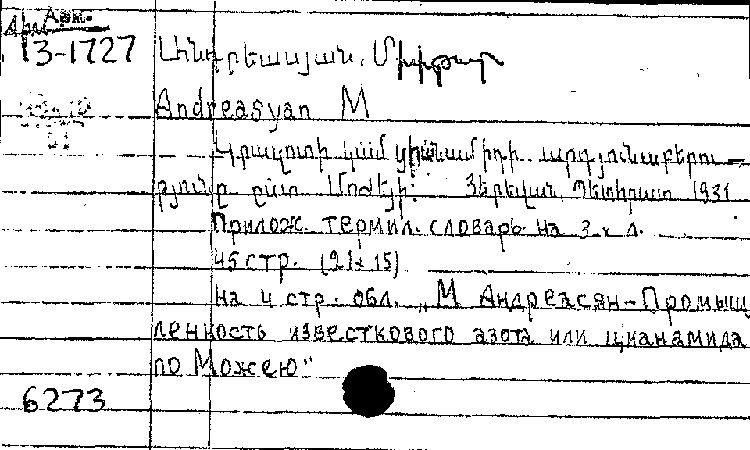 Арм.
13-1727 Անդրեասյան, Մխիթար
Andreasyan M
Կրազոտի կամ ցիանամիդի արդյունաբերու-
թյունը ըստ Մոժեյի: Յերեվան, Պետհրատ 1931
Прилож. термил. словарь на 3-х л.
45 стр. (21×15)
на 4 стр. обл. „М Андреасян-Промыш
ленность известкового азота или цианамида
по Можею"
6273